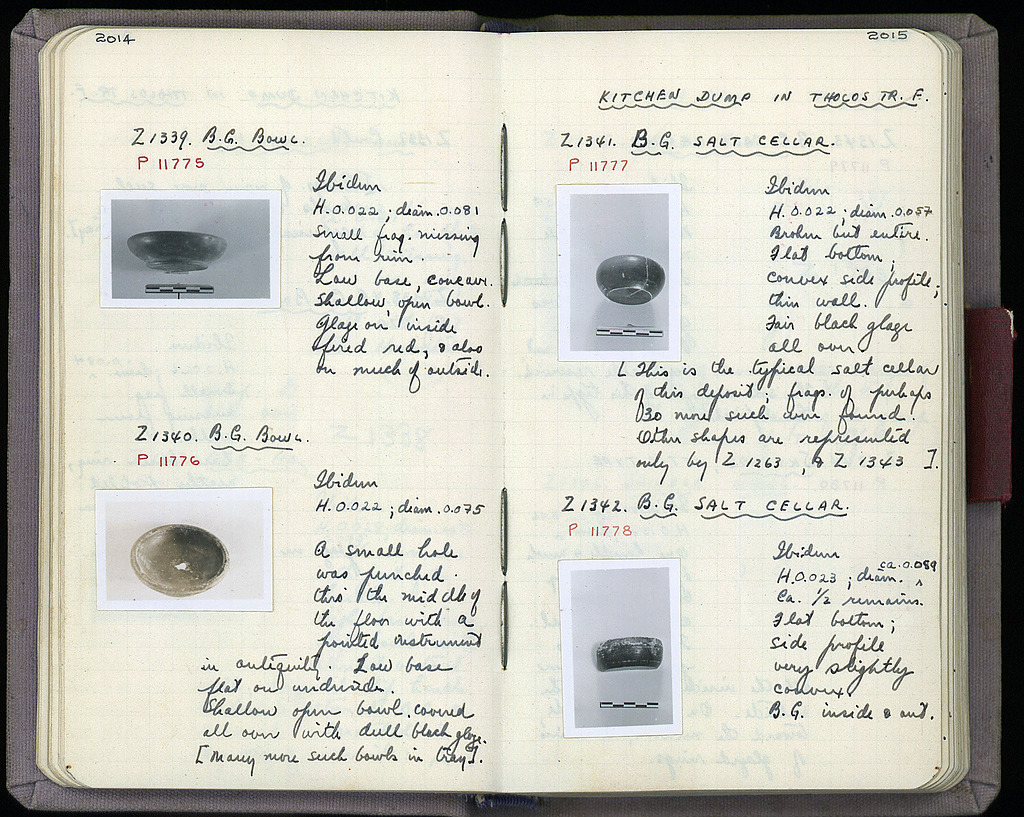 2014
Z 1339. B.G. Bowl.
P 11775
Ibidum
H. 0.022 ; diam. 0.081
Small frag. missing
from rim.
Low base, concave.
Shallow, open bowl.
Glaze on inside
fired red, & also
on much of outside.
Z 1340. B.G. Bowl.
P 11776
Ibidum
H. 0.022 ; diam. 0.075
A small hole
was punched
thro' the middle of
the floor with a
pointed instrument
in antiquity. Low base
flat on underside.
Shallow open bowl, covered
all over with dull black glaze.
[Many more such bowls in tray].
2015
KITCHEN DUMP IN THOLOS TR. F.
Z 1341. B.G. SALT CELLAR.
P 11777
Ibidum
H. 0.022 ; diam. 0.057
Broken but entire.
Flat bottom ;
convex side profile ;
thin wall.
Fair black glaze
all over.
[This is the typical salt cellar
of this deposit ; frags. of perhaps
30 more such were found.
Other shapes are represented
only by Z 1263, & Z 1343 ].
Z 1342. B.G. SALT CELLAR.
P 11778
Ibidum
H. 0.023 ; diam. ca. 0.089
Ca. 1/2 remains.
Flat bottom ;
side profile
very slightly
convex
B.G. inside & out.